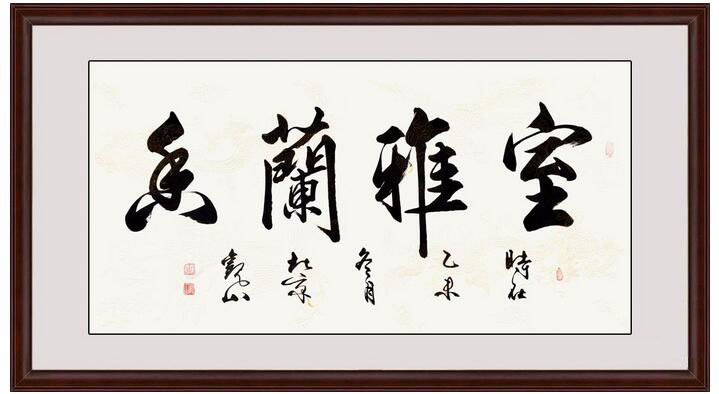 室雅蘭香
時在
乙未
冬月
北京